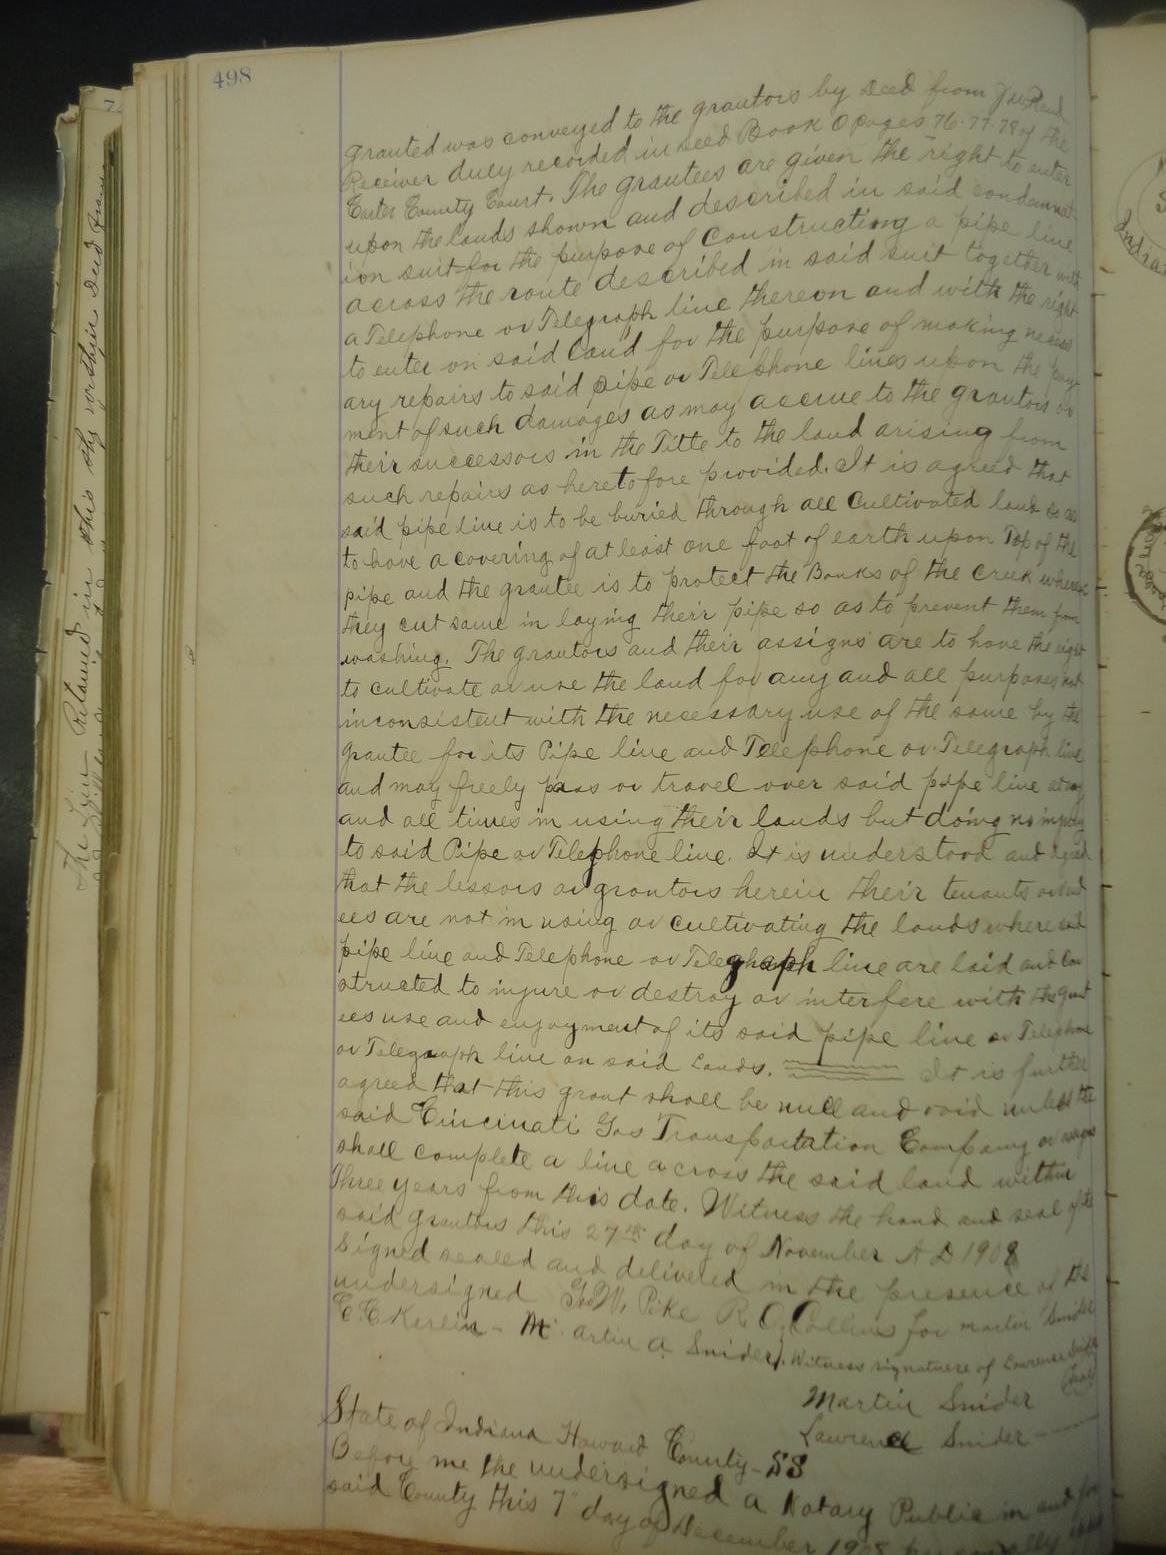 498
granted was conveyed to the grantors by Deed from
Receiver duly recorded in Deed Book O pages 76-77-78 of the
Carter County Court. The grantees are given the right to enter
upon the lands shown and described in said condemnat
ion suit for the purpose of Constructing a pipe line
across the route described in said suit together with
a Telephone or Telegraph line thereon and with the right
to enter on said land for the purpose of making necess
ary repairs to said pipe or Telephone lines upon the pay
ment of such damages as may accrue to the grantors or
their successors in the Title to the land arising from
such repairs as heretofore provided. It is agreed that
said pipe line is to be buried through all Cultivated land so as
to have a covering of at least one foot of earth upon Top of the
pipe and the grantee is to protect the Banks of the creek where
they cut same in laying their pipe so as to prevent them from
washing. The grantors and their assigns are to have the right
to cultivate or use the land for any and all purposes not
inconsistent with the necessary use of the same by the
grantee for its Pipe line and Telephone or Telegraph line
and may freely pass or travel over said pipe line at any
and all times in using their lands but doing no injury
to said Pipe or Telephone line. It is understood and agreed
that the lessors or grantors herein their tenants or vend
ees are not in using or cultivating the lands where said
pipe line and Telephone or Telegraph line are laid and con
structed to injure or destroy or interfere with the grant
ees use and enjoyment of its said pipe line or Telephone
or Telegraph line on said Lands. It is further
agreed that this grant shall be null and void unless the
said Cincinati Gas Transportation Company or assigns
shall complete a line across the said land within
Three years from this date. Witness the hand and seal of the
said grantors this 27th day of November A D 1908
Signed sealed and delivered in the presence of the
undersigned Geo W. Pike R. O. Collins for Martin Snider
E. C. Kerlin - Martin A. Snider). Witness signatuere of Lawrence Snider
Martin Snider (Seal)
Lawrence Snider
State of Indiana Howard County - SS
Before me the undersigned a Notary Public in and for
said County this 7" day of December 1908 personally
The Lien Retained in this